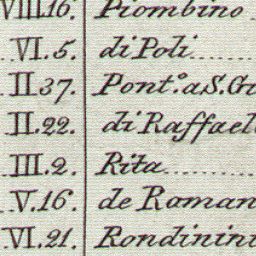 VIII.16. Piombino
VI.5. di Poli
II.37. Pont.º a S. Gi
II.22. di Raffael
III.2. Rita
V.16. de Roman
VI.21. Rondinini